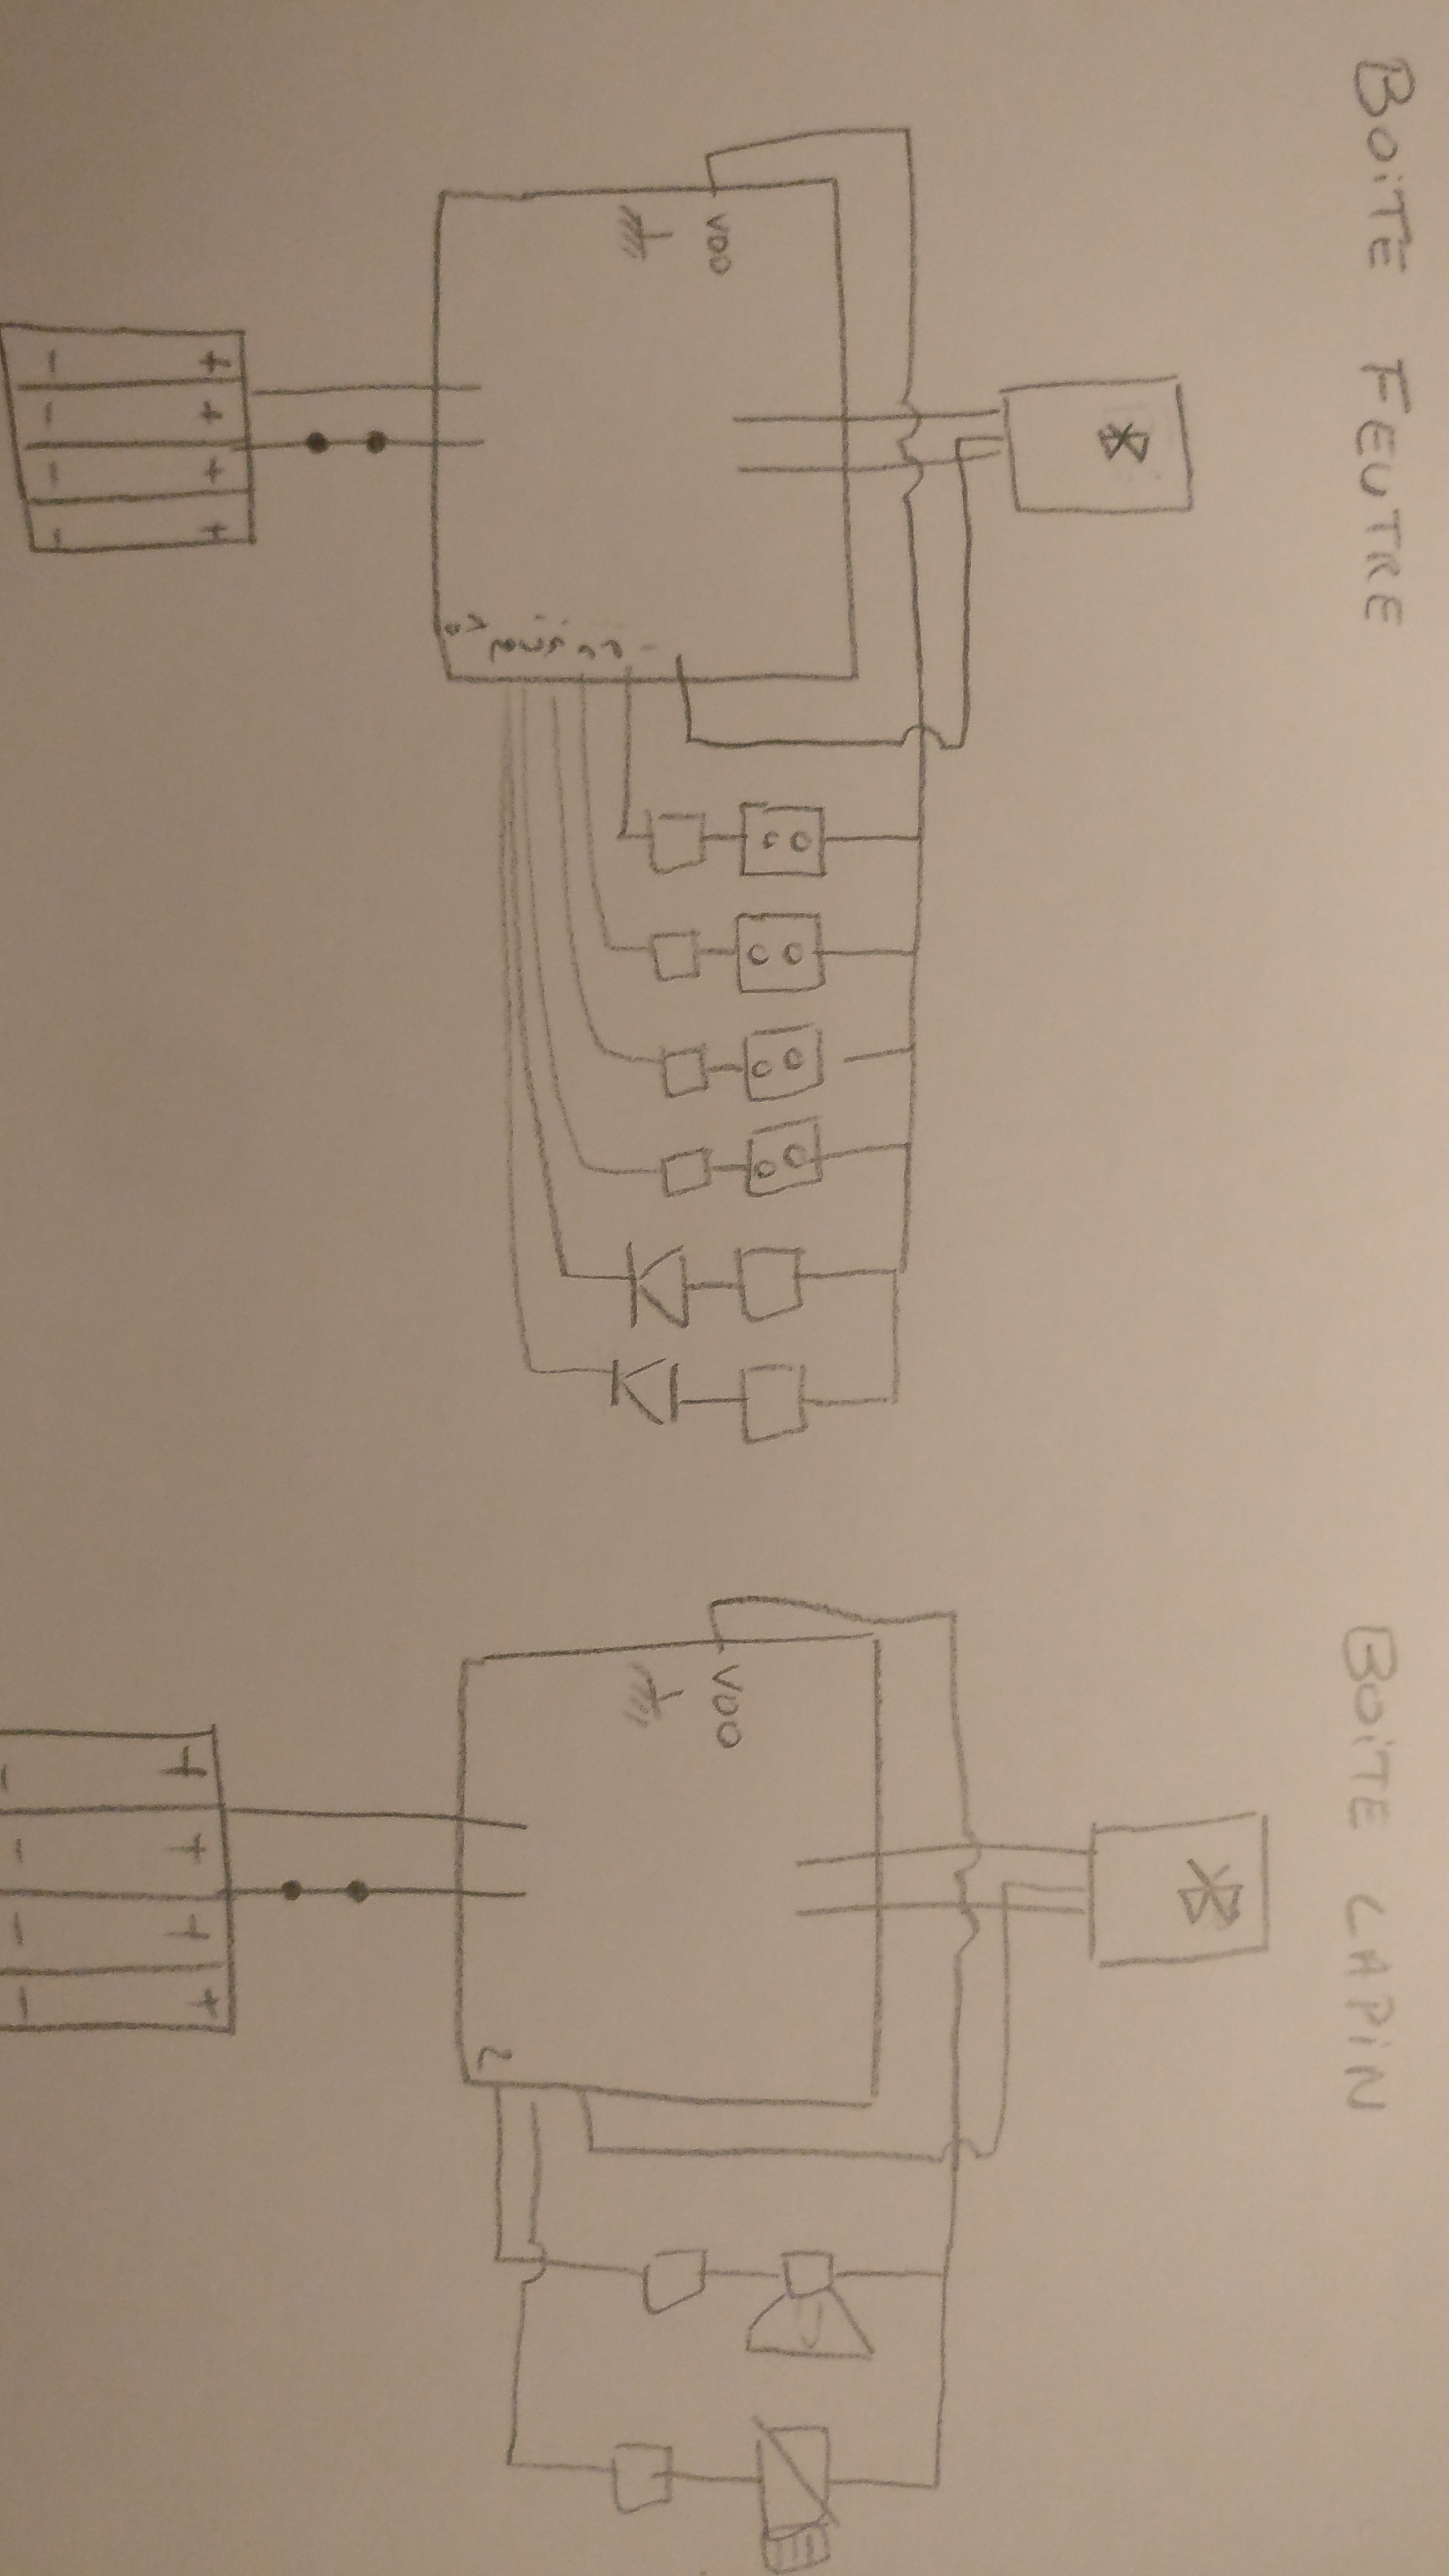 BOiTE FEUTRE
VDD
+ + + +
- - - -
BOiTE LAPiN
VDD
+ + + +
- - - -
2